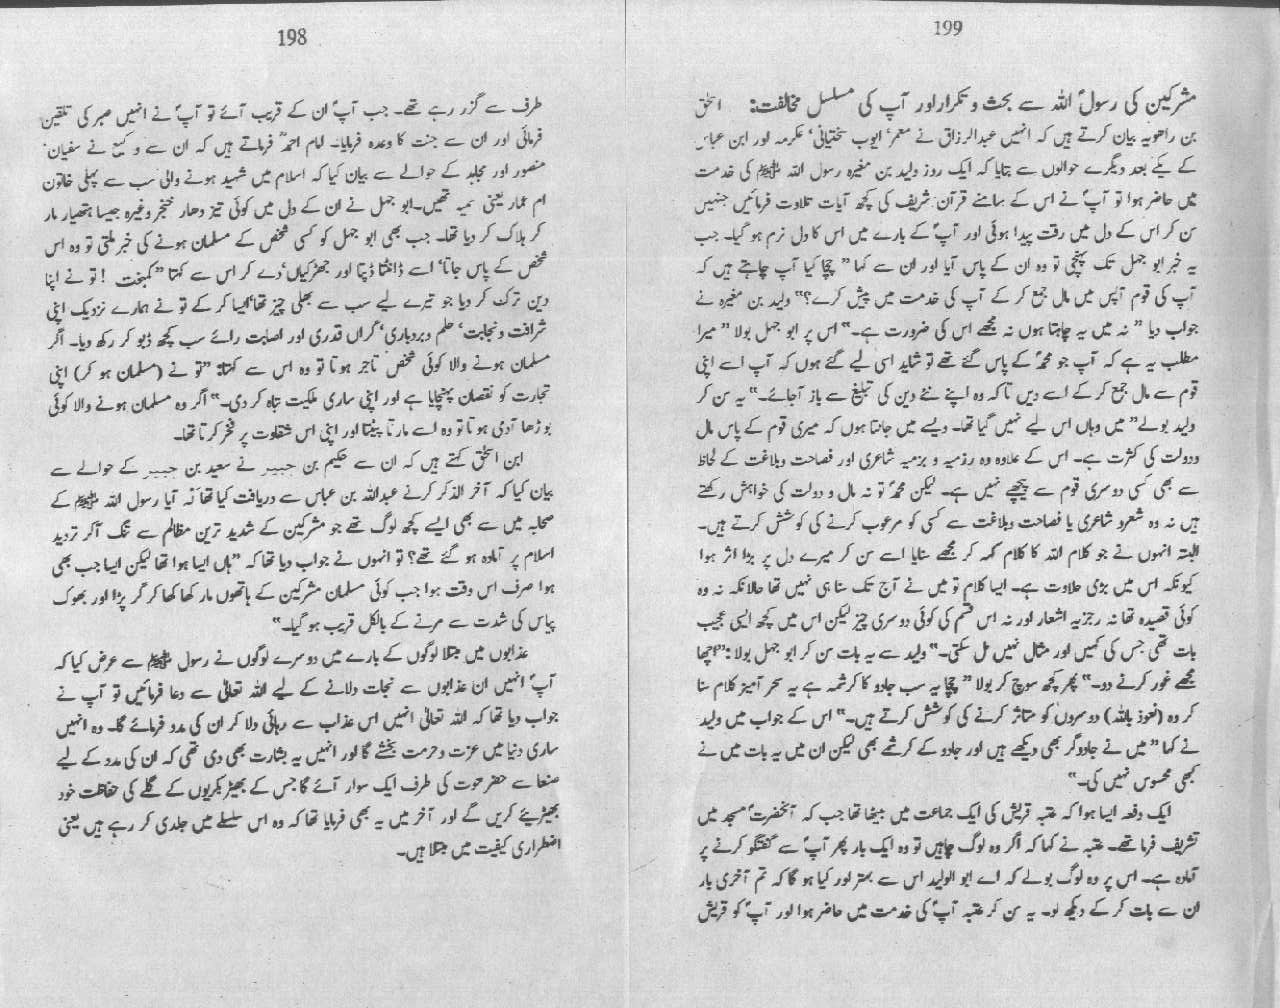 198
طرف سے گزر رہے تھے۔ جب آپؐ ان کے قریب آئے تو آپؐ نے انہیں صبر کی تلقین
فرمائی اور ان سے جنت کا وعدہ فرمایا۔ امام احمدؒ فرماتے ہیں کہ ان سے وکیع نے سفیان'
منصور اور مجاہد کے حوالے سے بیان کیا کہ اسلام میں شہید ہونے والی سب سے پہلی خاتون
ام عمار یعنی سمیہ تھیں۔ ابو جہل نے ان کے دل میں کوئی تیز دھار خنجر وغیرہ جیسا ہتھیار مار
کر ہلاک کر دیا تھا۔ جب بھی ابو جہل کو کسی شخص کے مسلمان ہونے کی خبر ملتی تو وہ اس
شخص کے پاس جاتا' اسے ڈانٹتا ڈپٹا اور جھڑکیاں' دے کر اس سے کہتا "کمبخت ! تو نے اپنا
دین ترک کر دیا جو تیرے لیے سب سے بھلی چیز تھا' ایسا کر کے تو نے ہمارے نزدیک اپنی
شرافت و نجابت' حلم و بردباری' گراں قدری اور اصابت رائے سب کچھ ڈبو کر رکھ دیا۔ اگر
مسلمان ہونے والا کوئی شخص تاجر ہوتا تو وہ اس سے کہتا: "تو نے (مسلمان ہو کر) اپنی
تجارت کو نقصان پہنچایا ہے اور اپنی ساری ملکیت تباہ کر دی۔" اگر وہ مسلمان ہونے والا کوئی
بوڑھا آدمی ہوتا تو وہ اسے مارتا پیٹتا اور اپنی اس شقاوت پر فخر کرتا تھا۔
ابن اسحٰق کہتے ہیں کہ ان سے حکیم بن جبیر نے سعید بن جبیر کے حوالے سے
بیان کیا کہ آخر الذکر کرنے عبداللہ بن عباس سے دریافت کیا تھا کہ آیا رسول اللہ ﷺ کے
صحابہ میں سے بھی ایسے کچھ لوگ تھے جو مشرکین کے شدید ترین مظالم سے تنگ آکر تردید
اسلام پر آمادہ ہو گئے تھے؟ تو انہوں نے جواب دیا تھا کہ "ہاں ایسا ہوا تھا لیکن ایسا جب بھی
ہوا صرف اس وقت ہوا جب کوئی مسلمان مشرکین کے ہاتھوں مار کھا کھا کر گر پڑا اور بھوک
پیاس کی شدت سے مرنے کے بالکل قریب ہو گیا۔"
عذابوں میں مبتلا لوگوں کے بارے میں دوسرے لوگوں نے رسول ﷺ سے عرض کیا کہ
آپؐ انہیں ان عذابوں سے نجات دلانے کے لیے اللہ تعالیٰ سے دعا فرمائیں تو آپ نے
جواب دیا تھا کہ اللہ تعالیٰ انہیں اس عذاب سے رہائی دلا کر ان کی مدد فرمائے گا۔ وہ انہیں
ساری دنیا میں عزت و حرمت بخشے گا اور انہیں یہ بشارت بھی دی تھی کہ ان کی مدد کے لیے
صنعا سے حضرموت کی طرف ایک سوار آئے گا جس کے بھیڑ بکریوں کے گلے کی حفاظت خود
بھیڑیئے کریں گے اور آخر میں یہ بھی فرمایا تھا کہ وہ اس سلسلے میں جلدی کر رہے ہیں یعنی
اضطراری کیفیت میں مبتلا ہیں۔
199
مشرکین کی رسولؐ اللہ سے بحث و تکرار اور آپ کی مسلسل مخالفت: اسحٰق
بن راھویہ بیان کرتے ہیں کہ انہیں عبدالرزاق نے معمر' ایوب سختیانی' عکرمہ اور ابن عباس
کے یکے بعد دیگرے حوالوں سے بتایا کہ ایک روز ولید بن مغیرہ رسول اللہ ﷺ کی خدمت
میں حاضر ہوا تو آپؐ نے اس کے سامنے قرآن شریف کی کچھ آیات تلاوت فرمائیں جنہیں
سن کر اس کے دل میں رقت پیدا ہوئی اور آپؐ کے بارے میں اس کا دل نرم ہو گیا۔ جب
یہ خبر ابو جہل تک پہنچی تو وہ ان کے پاس آیا اور ان سے کہا "چچا کیا آپ چاہتے ہیں کہ
آپ کی قوم آپس میں مال جمع کر کے آپ کی خدمت میں پیش کرے؟" ولید بن مغیرہ نے
جواب دیا "نہ میں یہ چاہتا ہوں نہ مجھے اس کی ضرورت ہے۔" اس پر ابو جہل بولا "میرا
مطلب یہ ہے کہ آپ جو محمدؐ کے پاس گئے تھے تو شاید اسی لیے گئے ہوں کہ آپ اسے اپنی
قوم سے مال جمع کر کے اسے دیں تاکہ وہ اپنے نئے دین کی تبلیغ سے باز آجائے۔" یہ سن کر
ولید بولے" میں وہاں اس لیے نہیں گیا تھا۔ ویسے میں جانتا ہوں کہ میری قوم کے پاس مال
ودولت کی کثرت ہے۔ اس کے علاوہ وہ رزمیہ و بزمیہ شاعری اور فصاحت وبلاغت کے لحاظ
سے بھی کسی دوسری قوم سے پیچھے نہیں ہے۔ لیکن محمدؐ تو نہ مال و دولت کی خواہش رکھتے
ہیں نہ وہ شعرو شاعری یا فصاحت وبلاغت سے کسی کو مرعوب کرنے کی کوشش کرتے ہیں۔
البتہ انہوں نے جو کلام اللہ کا کلام کہہ کر مجھے سنایا اسے سن کر میرے دل پر بڑا اثر ہوا
کیونکہ اس میں بڑی حلاوت ہے۔ ایسا کلام تو میں نے آج تک سنا ہی نہیں تھا حالانکہ نہ وہ
کوئی قصیدہ تھا نہ رجزیہ اشعار اور نہ اس قسم کی کوئی دوسری چیز لیکن اس میں کچھ ایسی عجیب
بات تھی جس کی کہیں اور مثال نہیں مل سکتی۔" ولید سے یہ بات سن کر ابو جہل بولا: "اچھا
مجھے غور کرنے دو۔" پھر کچھ سوچ کر بولا "چچا یہ سب جادو کا کرشمہ ہے یہ سحر آمیز کلام سنا
کر وہ (نعوذ باللہ) دوسروں کو متاثر کرنے کی کوشش کرتے ہیں۔" اس کے جواب میں ولید
نے کہا "میں نے جادوگر بھی دیکھے ہیں اور جادو کے کرشمے بھی لیکن ان میں یہ بات میں نے
کبھی محسوس نہیں کی۔"
ایک دفعہ ایسا ہوا کہ عتبہ قریش کی ایک جماعت میں بیٹھا تھا جب کہ آنحضرتؐ مسجد میں
تشریف فرما تھے۔ عتبہ نے کہا کہ اگر وہ لوگ چاہیں تو وہ ایک بار پھر آپؐ سے گفتگو کرنے پر
آمادہ ہے۔ اس پر وہ لوگ بولے کہ اے ابو الولید اس سے بہتر اور کیا ہو گا کہ تم آخری بار
ان سے بات کر کے دیکھ لو۔ یہ سن کر عتبہ آپؐ کی خدمت میں حاضر ہوا اور آپؐ کو قریش